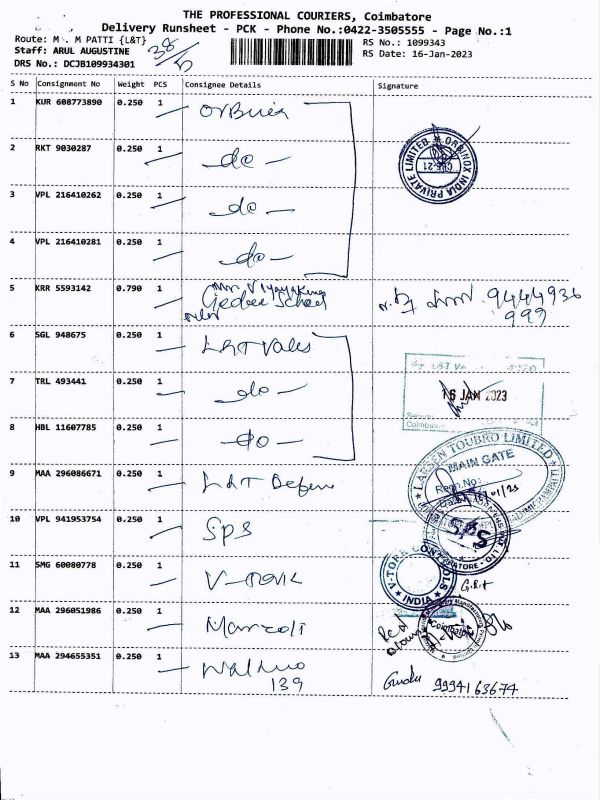 THE PROFESSIONAL COURIERS, Coimbatore
Delivery Runsheet - PCK - Phone No.:0422-3505555 - Page No.:1
Route: M . M PATTI {L&T}
RS No.: 1099343
Staff: ARUL AUGUSTINE
RS Date: 16-Jan-2023
DRS No.: DCJB109934301
38/5
S No Consignment No Weight PCS Consignee Details Signature
1 KUR 608773890 0.250 1
2 RKT 9030287 0.250 1 — do —
ORBINOX INDIA PRIVATE LIMITED
3 VPL 216410262 0.250 1 — do —
4 VPL 216410281 0.250 1 — do —
5 KRR 5593142 0.790 1 Gedee School 9444936
999
6 SGL 948675 0.250 1 L&T Valves
7 TRL 493441 0.250 1 — do —
16 JAN 2023
8 HBL 11607785 0.250 1 — do —
LARSEN TOUBRO LIMITED
MAIN GATE
Regn.No:
9 MAA 296086671 0.250 1 L&T Defence
10 VPL 941953754 0.250 1 SPS
SPS
11 SMG 60080778 0.250 1 V-TORK
V-TORK CONTROLS
INDIA
12 MAA 296051986 0.250 1
Coimbatore
13 MAA 294655351 0.250 1
139
9994163674